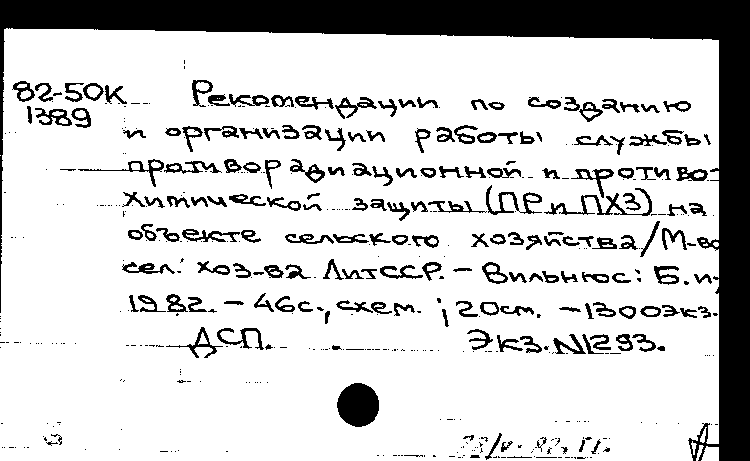 82-50К Рекомендации по созданию
1389 и организации работы службы
противорадиационной и противо-
химической защиты (ПР и ПХЗ) на
объекте сельского хозяйства/М-во
сел. хоз-ва ЛитССР. - Вильнюс: Б.и,
1982. - 46с., схем. ; 20см. - 1300экз.
ДСП. Экз. N1293.